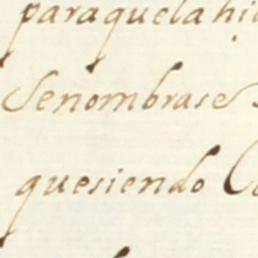 paraquela hi
Senombrase
quesiendo